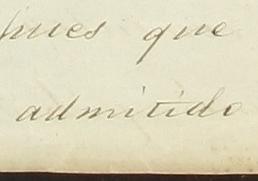 pues que
admitido